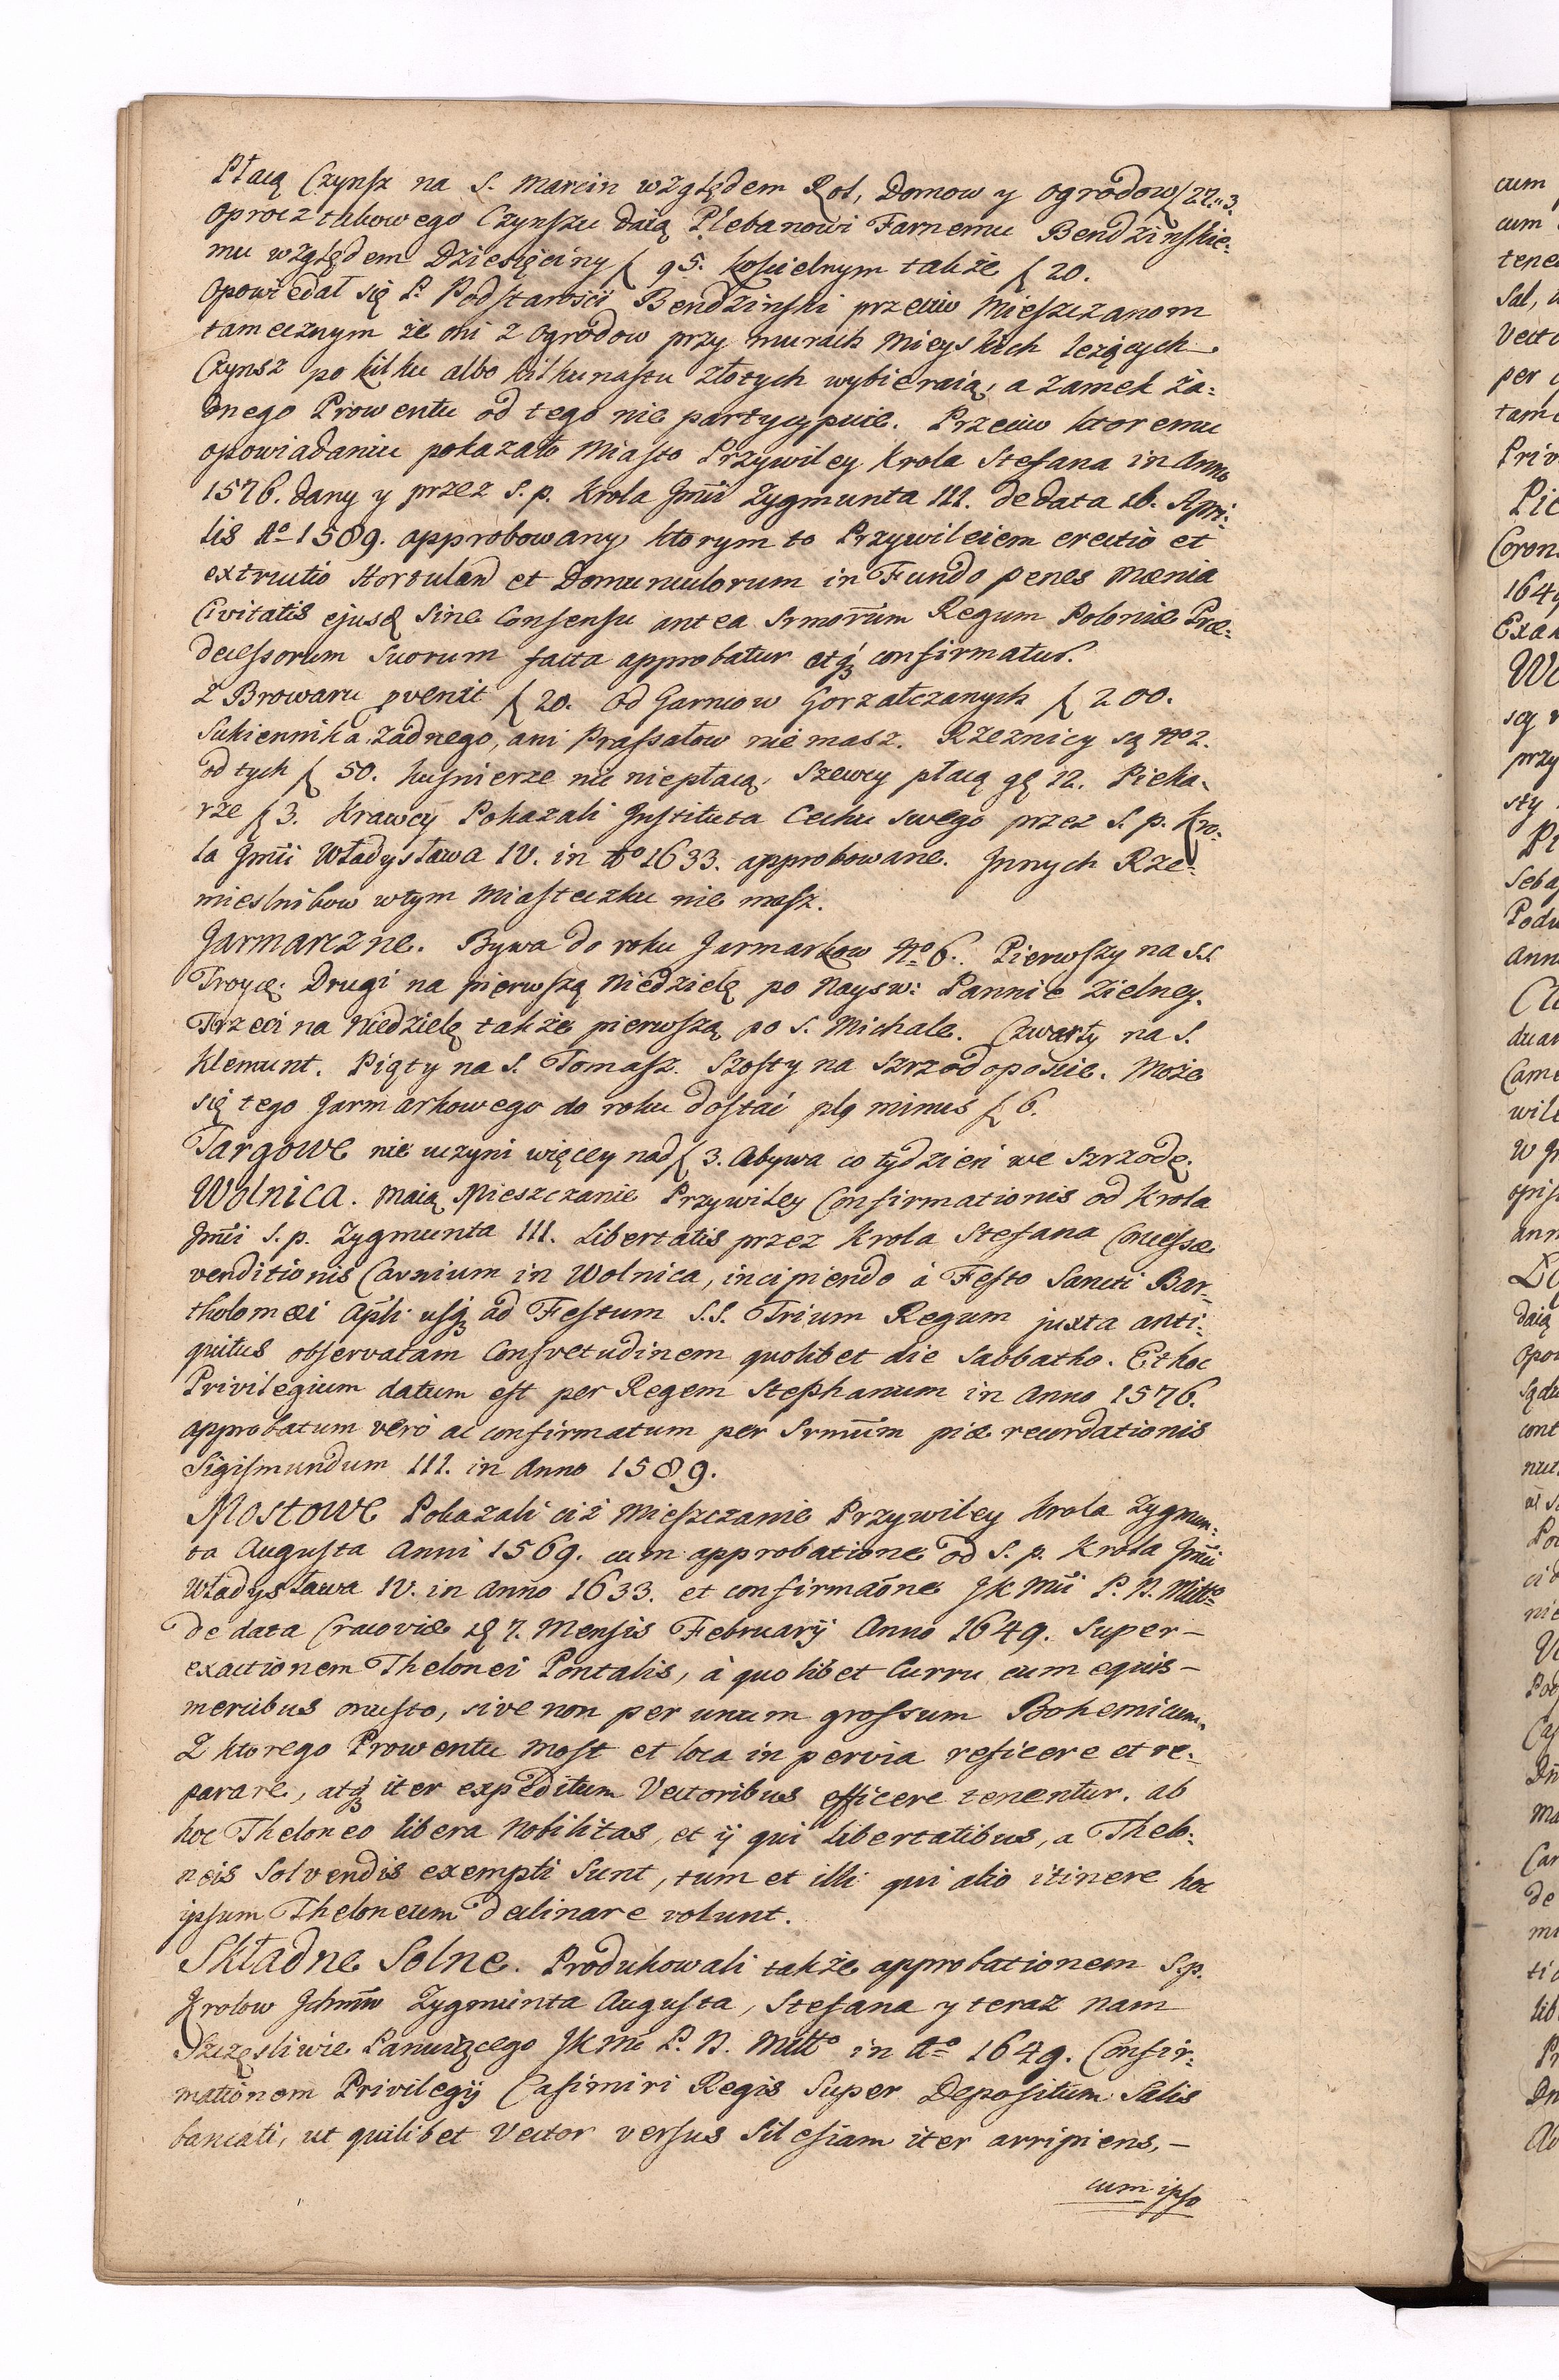 Płacą Czynsz na S. Marcin względem Rol, Domow y ogrodow ſ 22.. 3.
oprocz takowego Czynszu daią Plebanowi Farnemu Bendzinskie-
mu względem Dziesięciny ſ 95. Koscielnym także ſ 20.
Opowiedał się P. Podstarosci Bendzinski przeciw Mieszczanom
tamecznym że oni z ogrodow przy murach Mieyskich leżących
Czynsz po kilku albo kilkunastu złotych wybieraią, a Zamek ża-
dnego Prowentu od tego nie partycypuie. Przeciw ktoremu
opowiadaniu pokazało Miasto Przywiley Krola Stefana in Anno
1576. dany y przez S. p. Krola Jmći Zygmunta III. de data 26. Apri-
lis Aº 1589. approbowany, ktorym to Przywileiem erectio et
extructio Hortulan et Domunculorum in Fundo penes Mænia
Civitatis ejusd Sine Consensu antea Srmorum Regum Poloniæ Præ-
decessorum Suorum facta approbatur atq confirmatur.
Z Browaru pvenit ſ 20. Od Garncow Gorzałczanych ſ 200.
Sukiennika żadnego, ani Prassałow niemasz. Rzeznicy są No 2.
od tych ſ 50. Kusnierze nic niepłacą, Szewcy płacą gę 12. Pieka-
rze ſ 3. Krawcy Pokazali Jnstituta Cechu swego przez S. p. Kro-
la Jmći Władysława IV. in Aº 1633. approbowane. Jnnych Rze-
mieslnikow wtym Miasteczku nie masz.
Jarmarczne. Bywa do roku Jarmarkow Nº 6. Pierwszy na S.S.
Troycę. Drugi na pierwszą Niedzielę po Naysw: Pannie Zielney.
Trzeci na Niedzielę także pierwszą po S. Michale. Czwarty na S.
Klemunt. Piąty na S. Tomasz. Szosty na Szrzodoposcie. Może
się tego Jarmarkowego do roku dostać plq minus ſ 6.
Targowe nie uczyni więcey nad ſ 3. Abywa co tydzień we Szrzodę.
Wolnica. Maią Mieszczanie Przywiley Confirmationis od Krola
Jmći S. p. Zygmunta III. Libertatis przez Krola Stefana Concessæ
venditionis Carnium in Wolnica, incipiendo à Festo Sancti Bar-
tholomæi Apli usq ad Festum S.S. Trium Regum juxta anti-
quitus observatam Consvetudinem quolibet die Sabbatho. Et hoc
Privilegium datum est per Regem Stephanum in Anno 1576.
approbatum verò ac confirmatum per Srmum piæ recordationis
Sigismundum III. in Anno 1589.
Mostowe Pokazali ciż Mieszczanie Przywiley Krola Zygmun-
ta Augusta Anni 1569. cum approbatione od S. p. Krola Jmći
Władysława IV. in Anno 1633. et confirmaone JK Mći P. N. Mittº
de data Cracoviæ 27. Mensis Februarij Anno 1649. Super-
exactionem Thelonei Pontalis, à quolibet Curru cum equis-
mercibus onusto, sive non per unum grossum Bohemicum.
Z ktorego Prowentu Most et loca in pervia reficere et re-
parare, atq iter expeditum Vectoribus efficere tenentur. ab
hoc Theloneo libera Nobilitas, et ij qui Libertatibus, a Thelo-
neis Solvendis exempti Sunt, tum et illi qui alio itinere hoc
ipsum Theloneum declinare volunt.
Składne Solne. Produkowali także approbationem S.p.
Krolow Jchmm Zygmunta Augusta, Stefana y teraz nam
Szczęsliwie Panuiącego JK Mć P. N. Mittº in Aº 1649. Confir-
mationem Privilegij Casimiri Regis Super Depositum Salis
bancati, ut quilibet Vector versus Silesiam iter arripiens, -
cum ipso